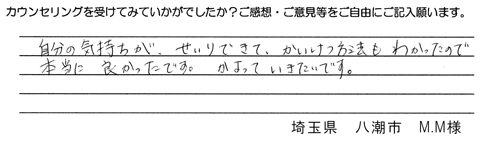 カウンセリングを受けてみていかがでしたか？ご感想・ご意見等をご自由にご記入願います。
自分の気持ちが、せいりできて、かいけつ方法も わかったので
本当に 良かったです。 かよって いきたいです。
埼玉県 八潮市 M.M様